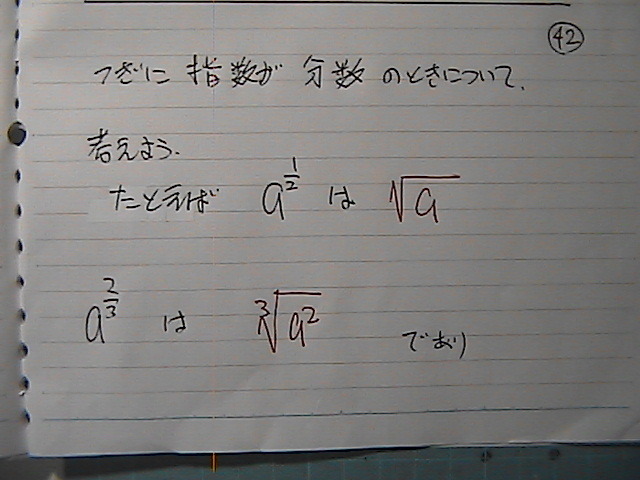 ㊷
つぎに 指数が 分数 のときについて、
考えよう.
たとえば a^{\frac{1}{2}} は \sqrt{a}
a^{\frac{2}{3}} は \sqrt[3]{a^2} であり